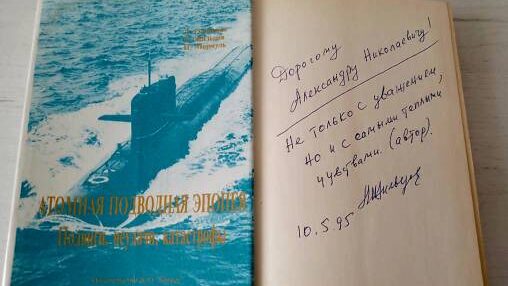 И. Мормуль
АТОМНАЯ ПОДВОДНАЯ ЭПОПЕЯ
Подвиги, неудачи, катастрофы
Дорогому
Александру Николаевичу!
Не только с уважением,
но и с самыми теплыми
чувствами. (автор).
10.5.95